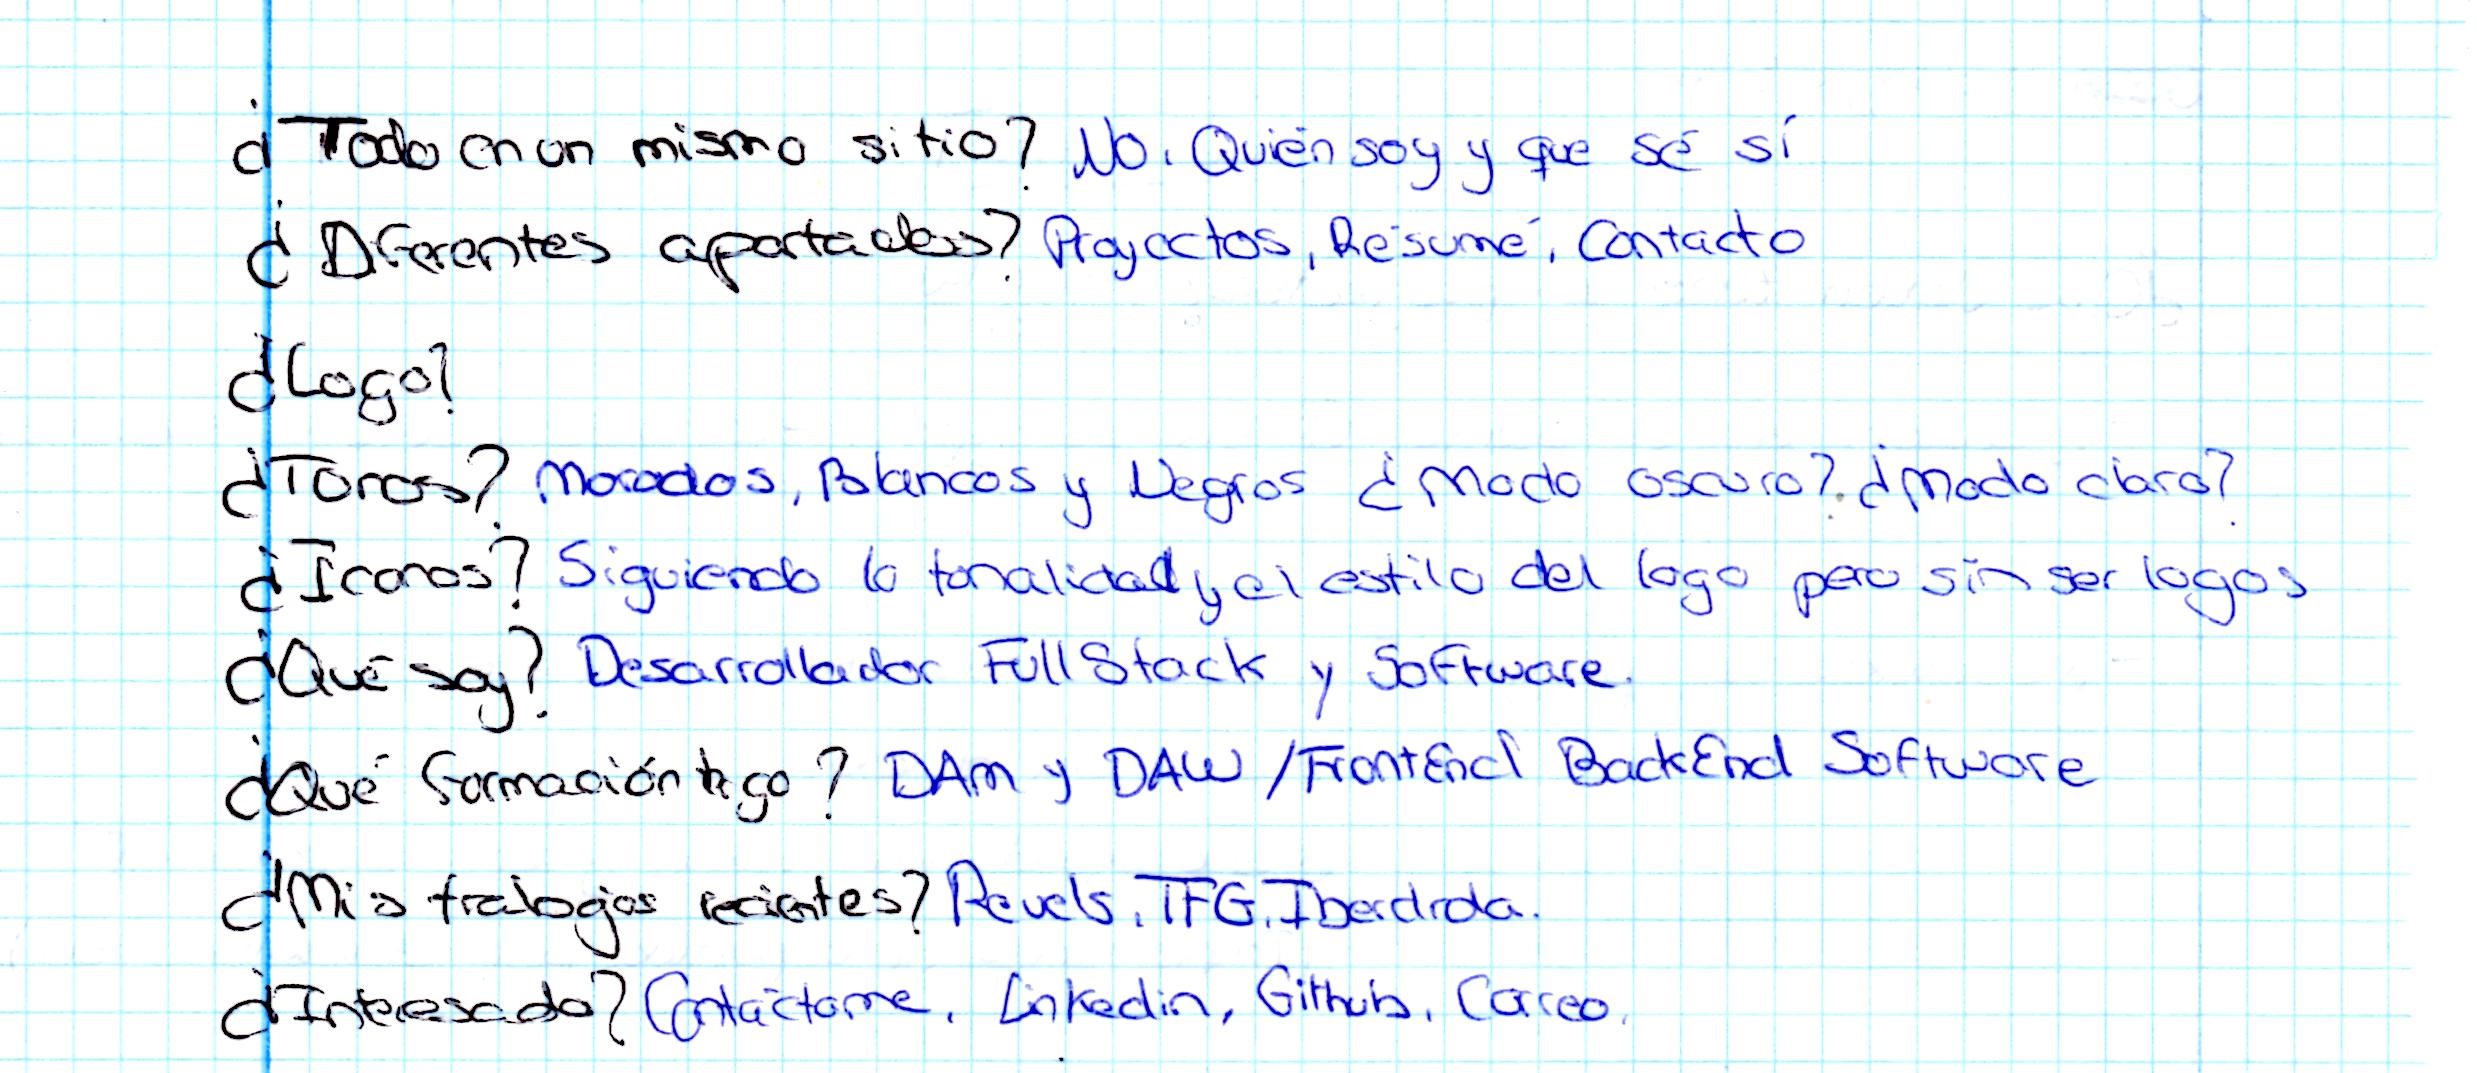 ¿Todo en un mismo sitio? No. Quién soy y que sé sí
¿Diferentes apartados? Proyectos, Résumé, Contacto
¿Logo?
¿Tonos? Morados, Blancos y Negros ¿Modo oscuro? ¿Modo claro?
¿Iconos? Siguiendo la tonalidad y el estilo del logo pero sin ser logos
¿Qué soy? Desarrollador FullStack y Software.
¿Qué formación tego? DAM y DAW / FrontEnd BackEnd Software
¿Mis trabajos recientes? Revels, TFG, Iberdrola.
¿Interesado? Contáctame, Linkedin, Github, Correo.